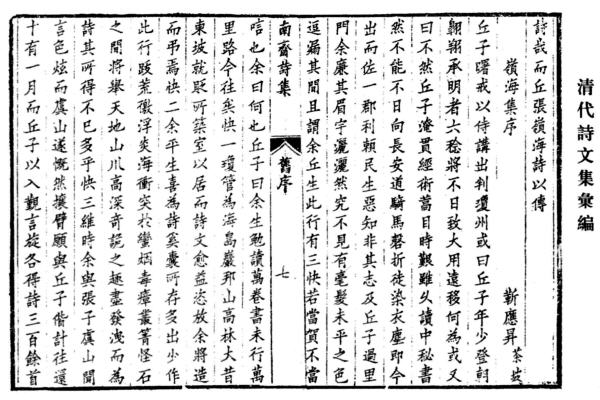 清代詩文集彙編
詩哉而丘張嶺海詩以傳
嶺海集序
靳應昇 茶坡
丘子曙戒以侍講出判瓊州或曰丘子年少登朝
翺翔承明者六稔將不日致大用遠移何為或又
曰不然丘子淹貫經術當目時艱雖久讀中秘書
然不能不日向長安道騎馬磬折徒染衣塵即今
出而佐一郡利賴民生惡知非其志及丘子過里
門余廉其眉宇灑灑然究不見有毫髮未平之色
逗漏其間且謂余丘生此行有三快若當賀不當
南齋詩集
舊序
七
唁也余曰何也丘子曰余生勉讀萬卷書未行萬
里路今往矣快一瓊管為海島巖邦山高林大昔
東坡就貶所築室以居而詩文愈益恣放余將造
而弔焉快二余平生喜為詩奚囊所存多出少作
此行跋荒徼浮炎海衝突於蠻烟毒瘴叢菁怪石
之間將舉天地山川高深奇詭之趣盡發洩而為
詩其所得不已多乎快三維時余與張子虞山聞
言色炫而虞山遂慨然攘臂願與丘子偕計往還
十有一月而丘子以入觀言旋各得詩三百餘首